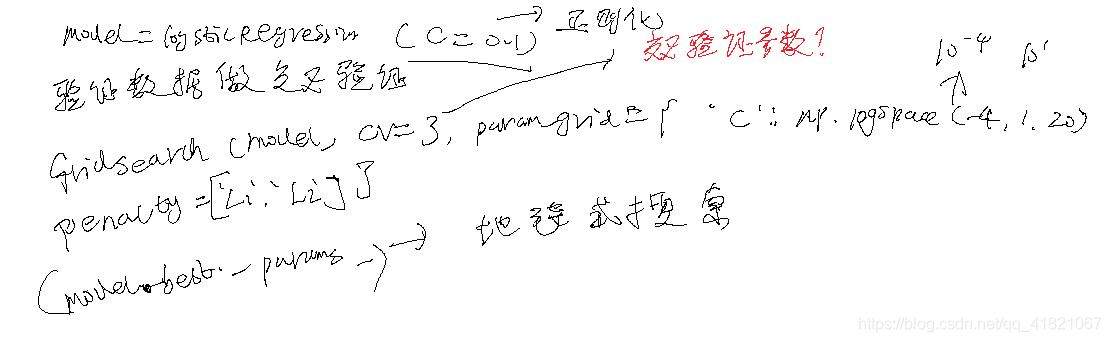 model = logsticRegression (C=0.1) → 正则化
交叉验证参数!
验证数据做交叉验证
10⁻⁴ 10¹
Gridsearch (model, CV=3, paramgrid={ 'C': np.logspace(-4, 1, 20)
penalty=['L1', 'L2'] }
(model.best_params_) → 地毯式搜索
https://blog.csdn.net/qq_41821067